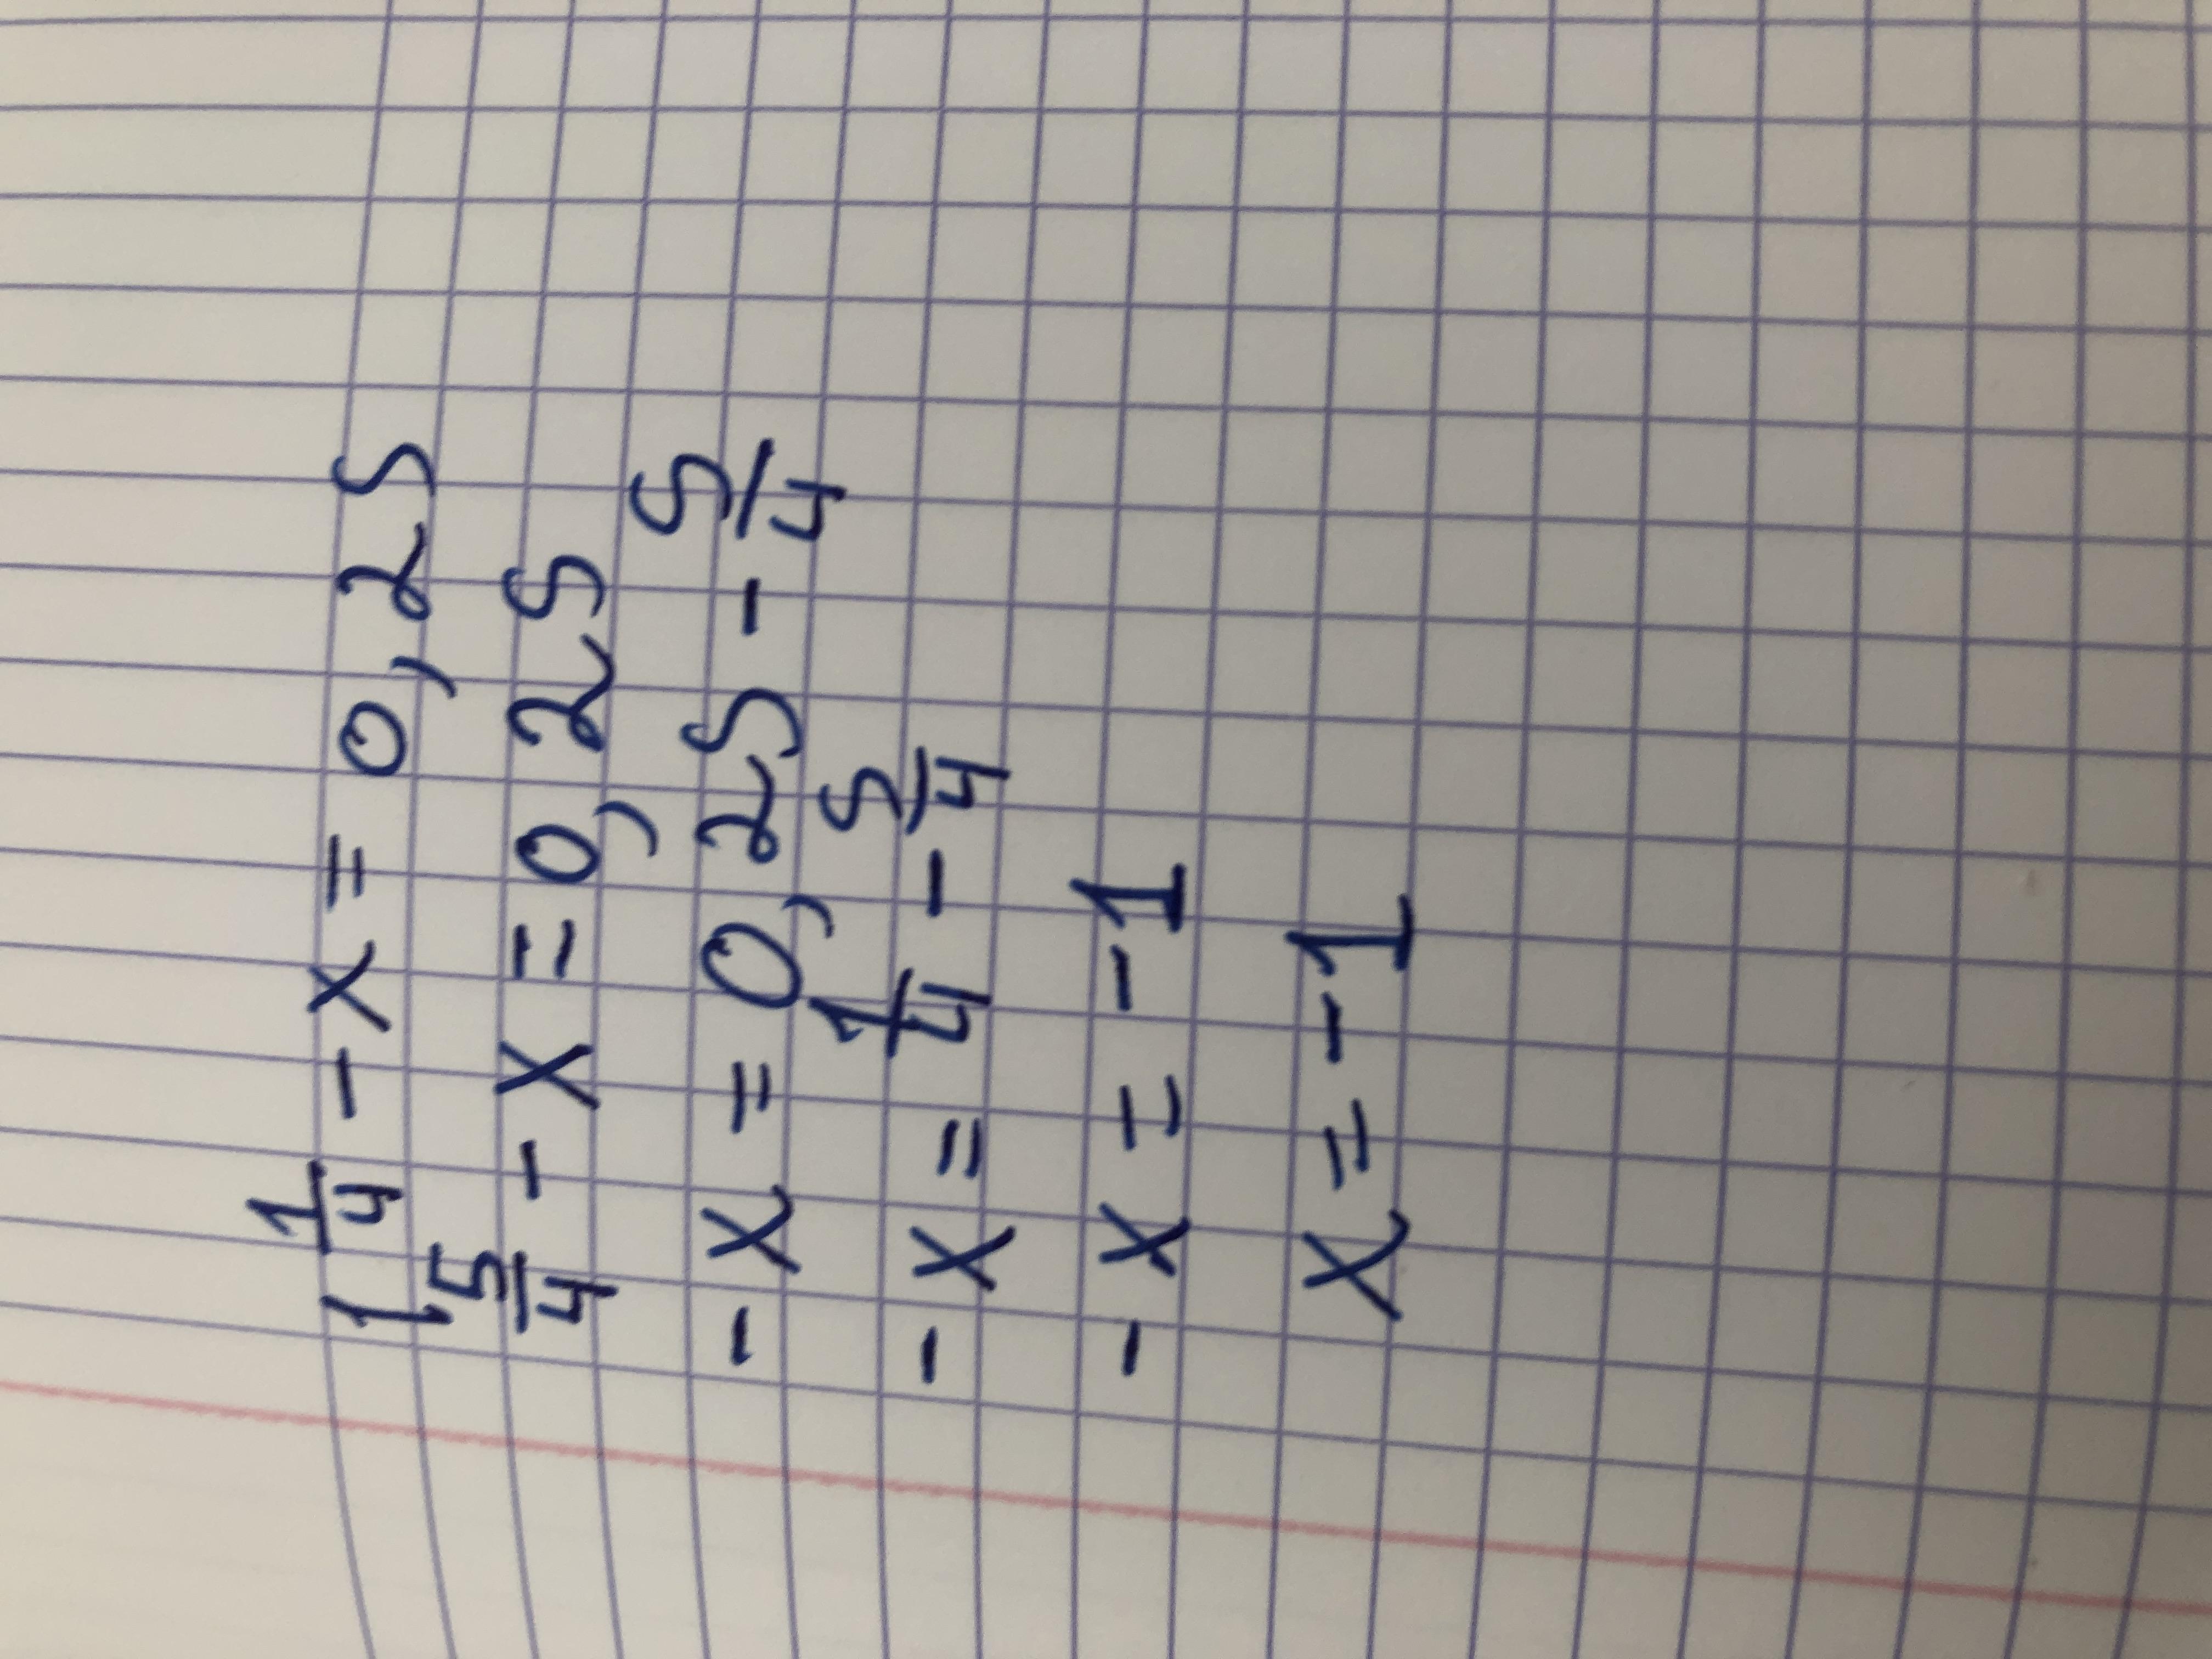 1 1/4 - x = 0,25
5/4 - x = 0,25
- x = 0,25 - 5/4
- x = 1/4 - 5/4
- x = -1
x = -1